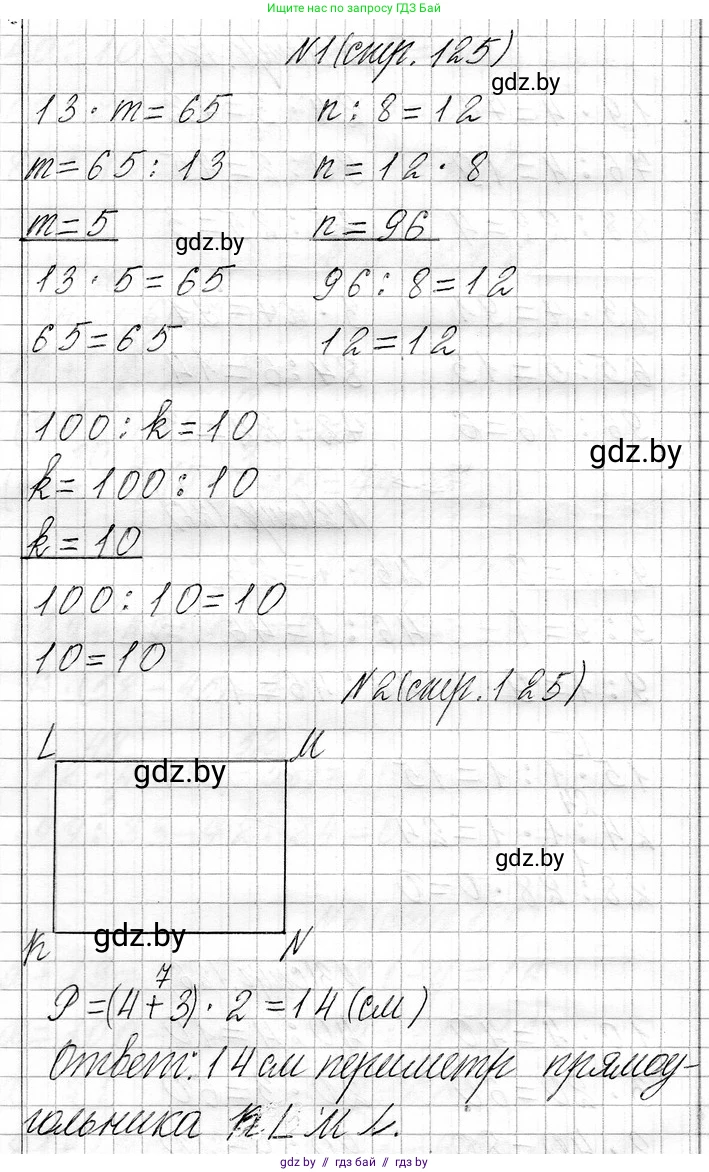 Ищите нас по запросу ГДЗ Бай
N1(стр. 125)
gdz.by
13 · m = 65 n : 8 = 12
m = 65 : 13 n = 12 · 8
m = 5 n = 96
gdz.by
13 · 5 = 65 96 : 8 = 12
65 = 65 12 = 12
100 : k = 10
gdz.by
k = 100 : 10
k = 10
100 : 10 = 10
10 = 10
N2(стр. 125)
L M
gdz.by
gdz.by
K N
gdz.by
7
P = (4 + 3) · 2 = 14 (см)
Ответ: 14 см периметр прямоу-
гольника K L M
gdz.by // гдз бай // gdz.by